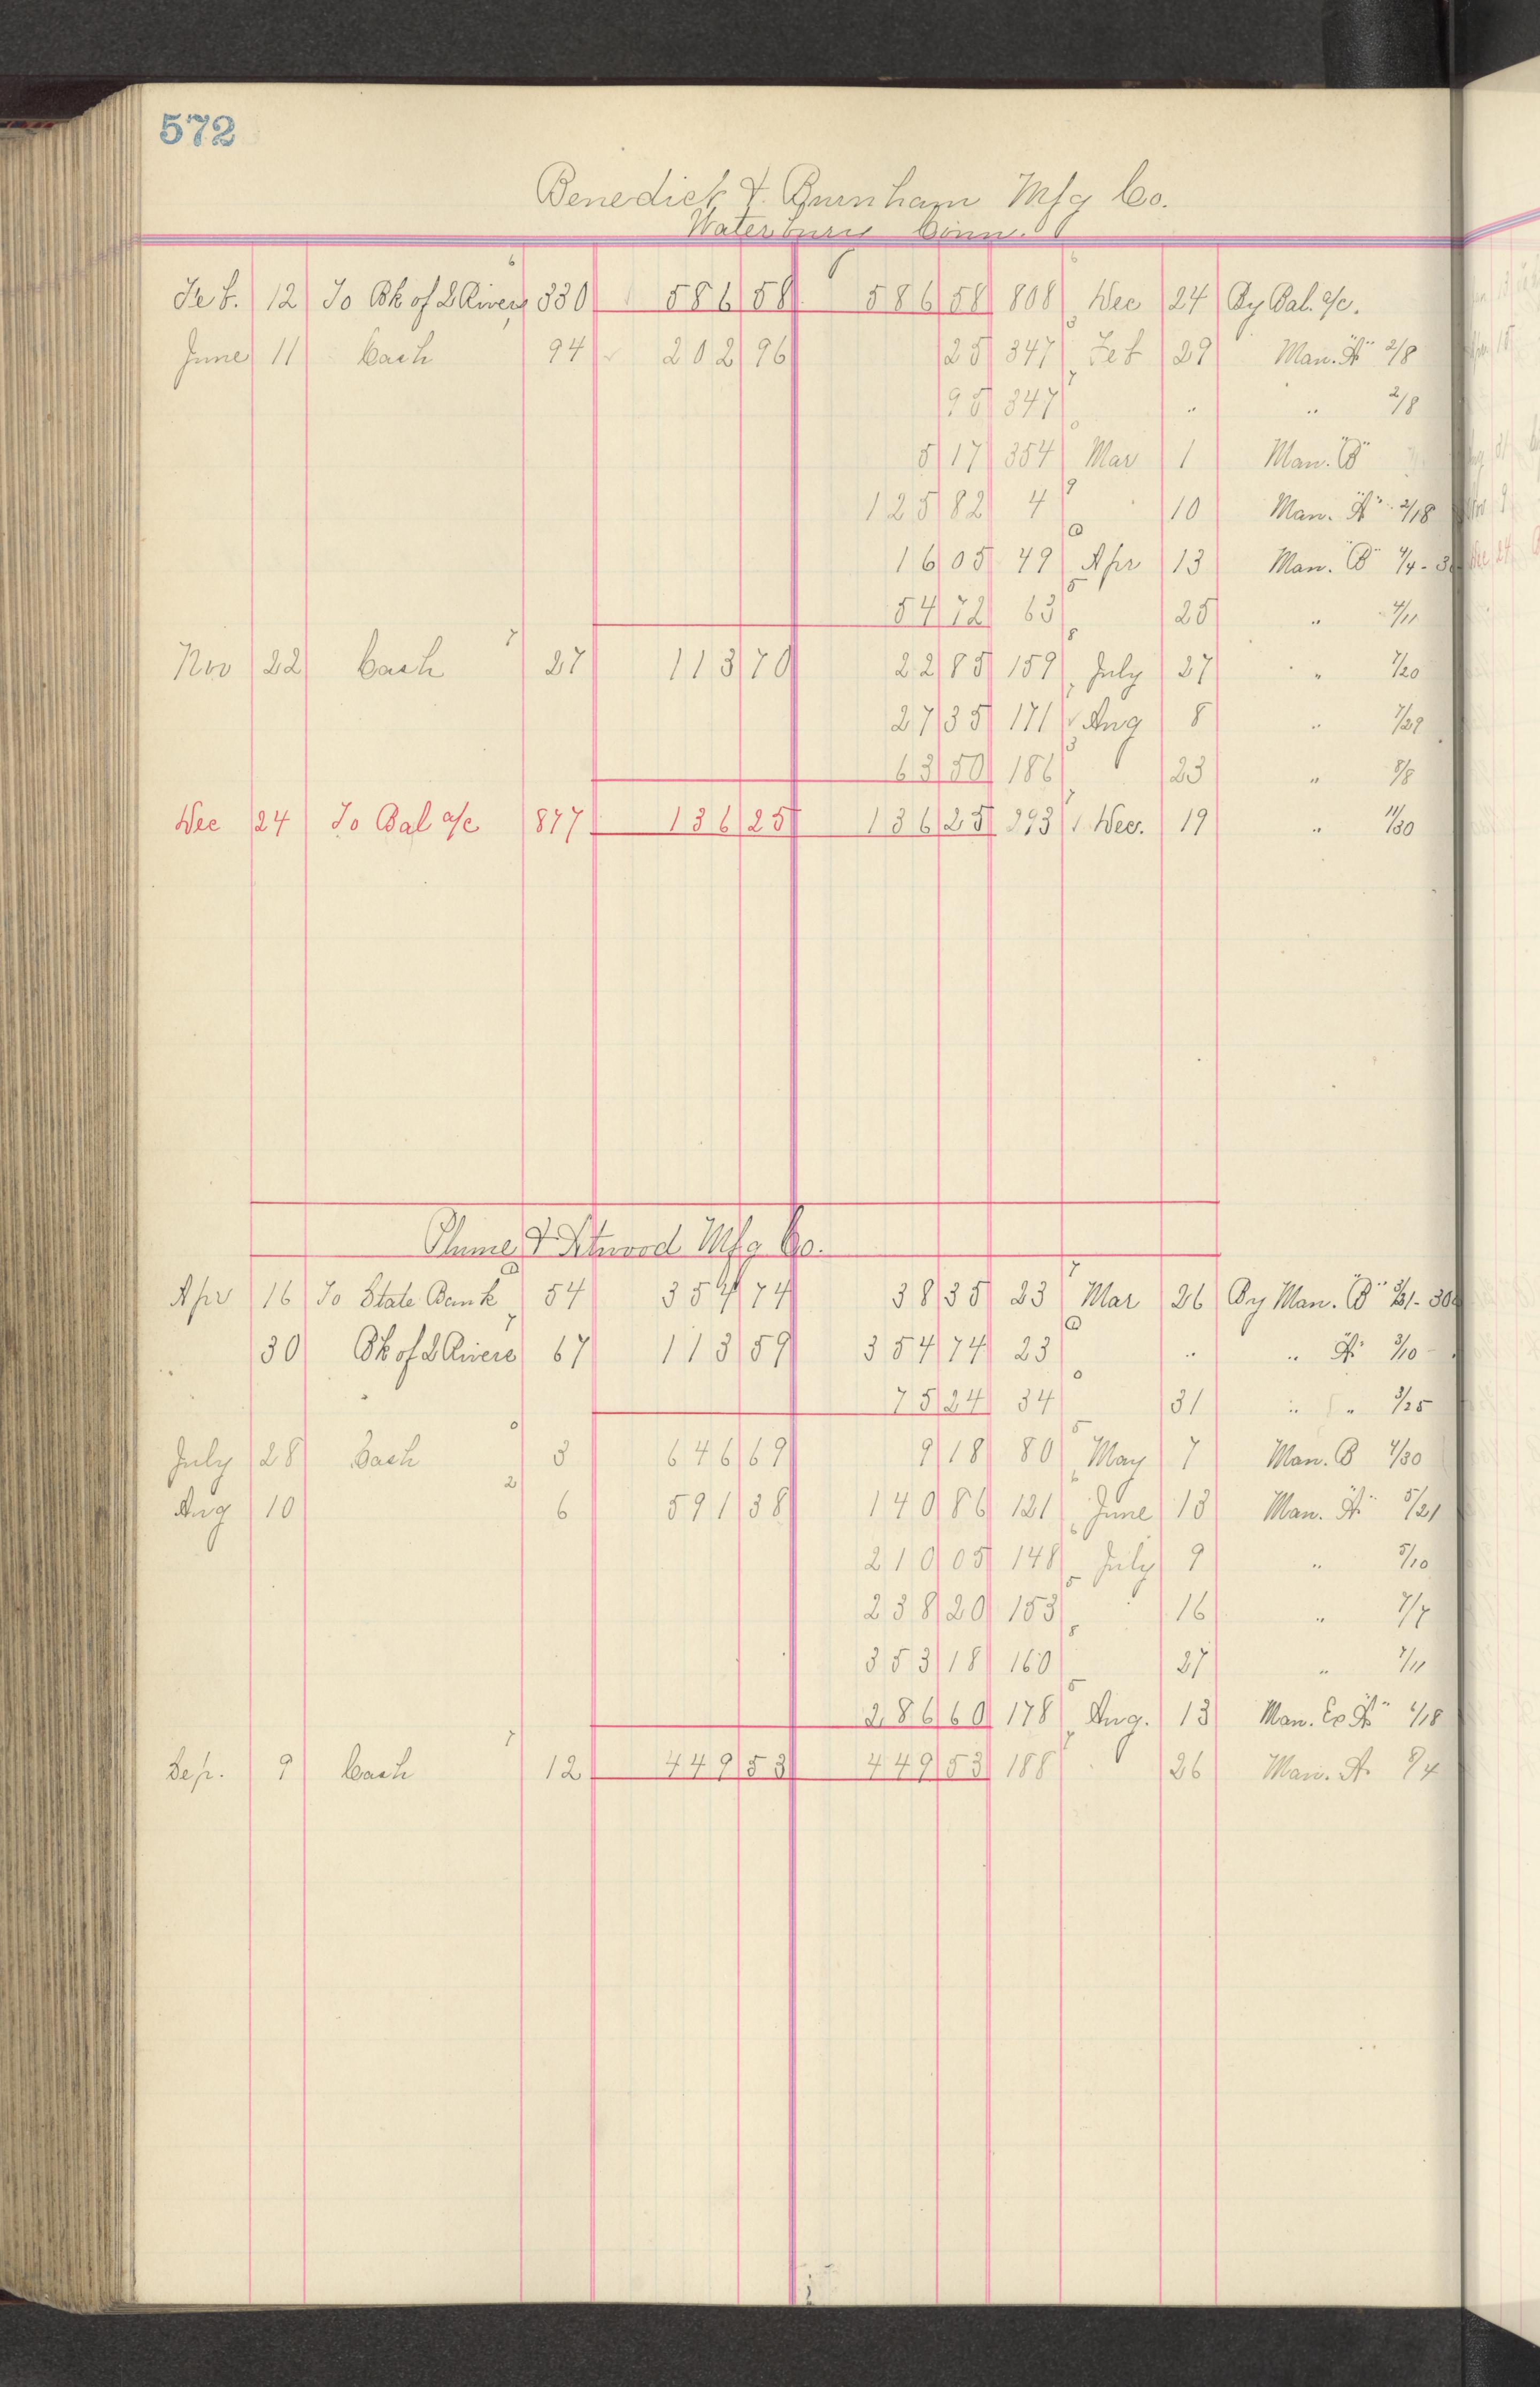 572
Benedict & Burnham Mfg Co.
Waterbury Conn.
Feb. 12 To Bk of 2 Rivers 330 586 58 586 58 808 Dec 24 By Bal. a/c.
June 11 Cash 94 202 96 25 347 Feb 29 Man. "A" 2/8
95 347 " " 2/8
5 17 354 Mar 1 Man. "B"
125 82 4 10 Man. "A" 2/18
16 05 49 Apr 13 Man. "B" 4/4 - 3
54 72 63 25 " 4/11
Nov 22 Cash 27 113 70 22 85 159 July 27 " 7/20
27 35 171 Aug 8 " 7/29
63 50 186 23 " 8/8
Dec 24 To Bal a/c 877 136 25 136 25 293 Dec. 19 " 11/30
Plume & Atwood Mfg Co.
Apr 16 To State Bank 54 354 74 38 35 23 Mar 26 By Man. "B" 3/21 - 30
30 Bk of 2 Rivers 67 113 59 354 74 23 " " A 3/10 -
75 24 34 31 " " 3/25
July 28 Cash 3 646 69 9 18 80 May 7 Man. B 4/30
Aug 10 6 591 38 140 86 121 June 13 Man. "A" 5/21
210 05 148 July 9 " 5/10
238 20 153 16 " 7/7
353 18 160 27 " 7/11
286 60 178 Aug. 13 Man. Ex "A" 6/18
Sep. 9 Cash 12 449 53 449 53 188 26 Man. A. 8/4